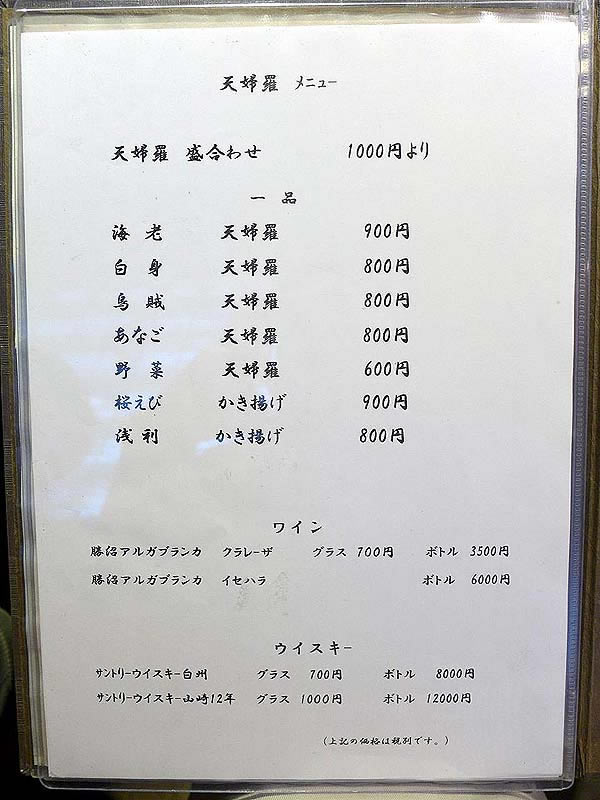 天婦羅 メニュー
天婦羅 盛合わせ 1000円より
一品
海老 天婦羅 900円
白身 天婦羅 800円
烏賊 天婦羅 800円
あなご 天婦羅 800円
野菜 天婦羅 600円
桜えび かき揚げ 900円
浅利 かき揚げ 800円
ワイン
勝沼アルガブランカ クラレーザ グラス 700円 ボトル 3500円
勝沼アルガブランカ イセハラ ボトル 6000円
ウイスキー
サントリーウイスキー白州 グラス 700円 ボトル 8000円
サントリーウイスキー山崎12年 グラス 1000円 ボトル 12000円
(上記の価格は税別です。)